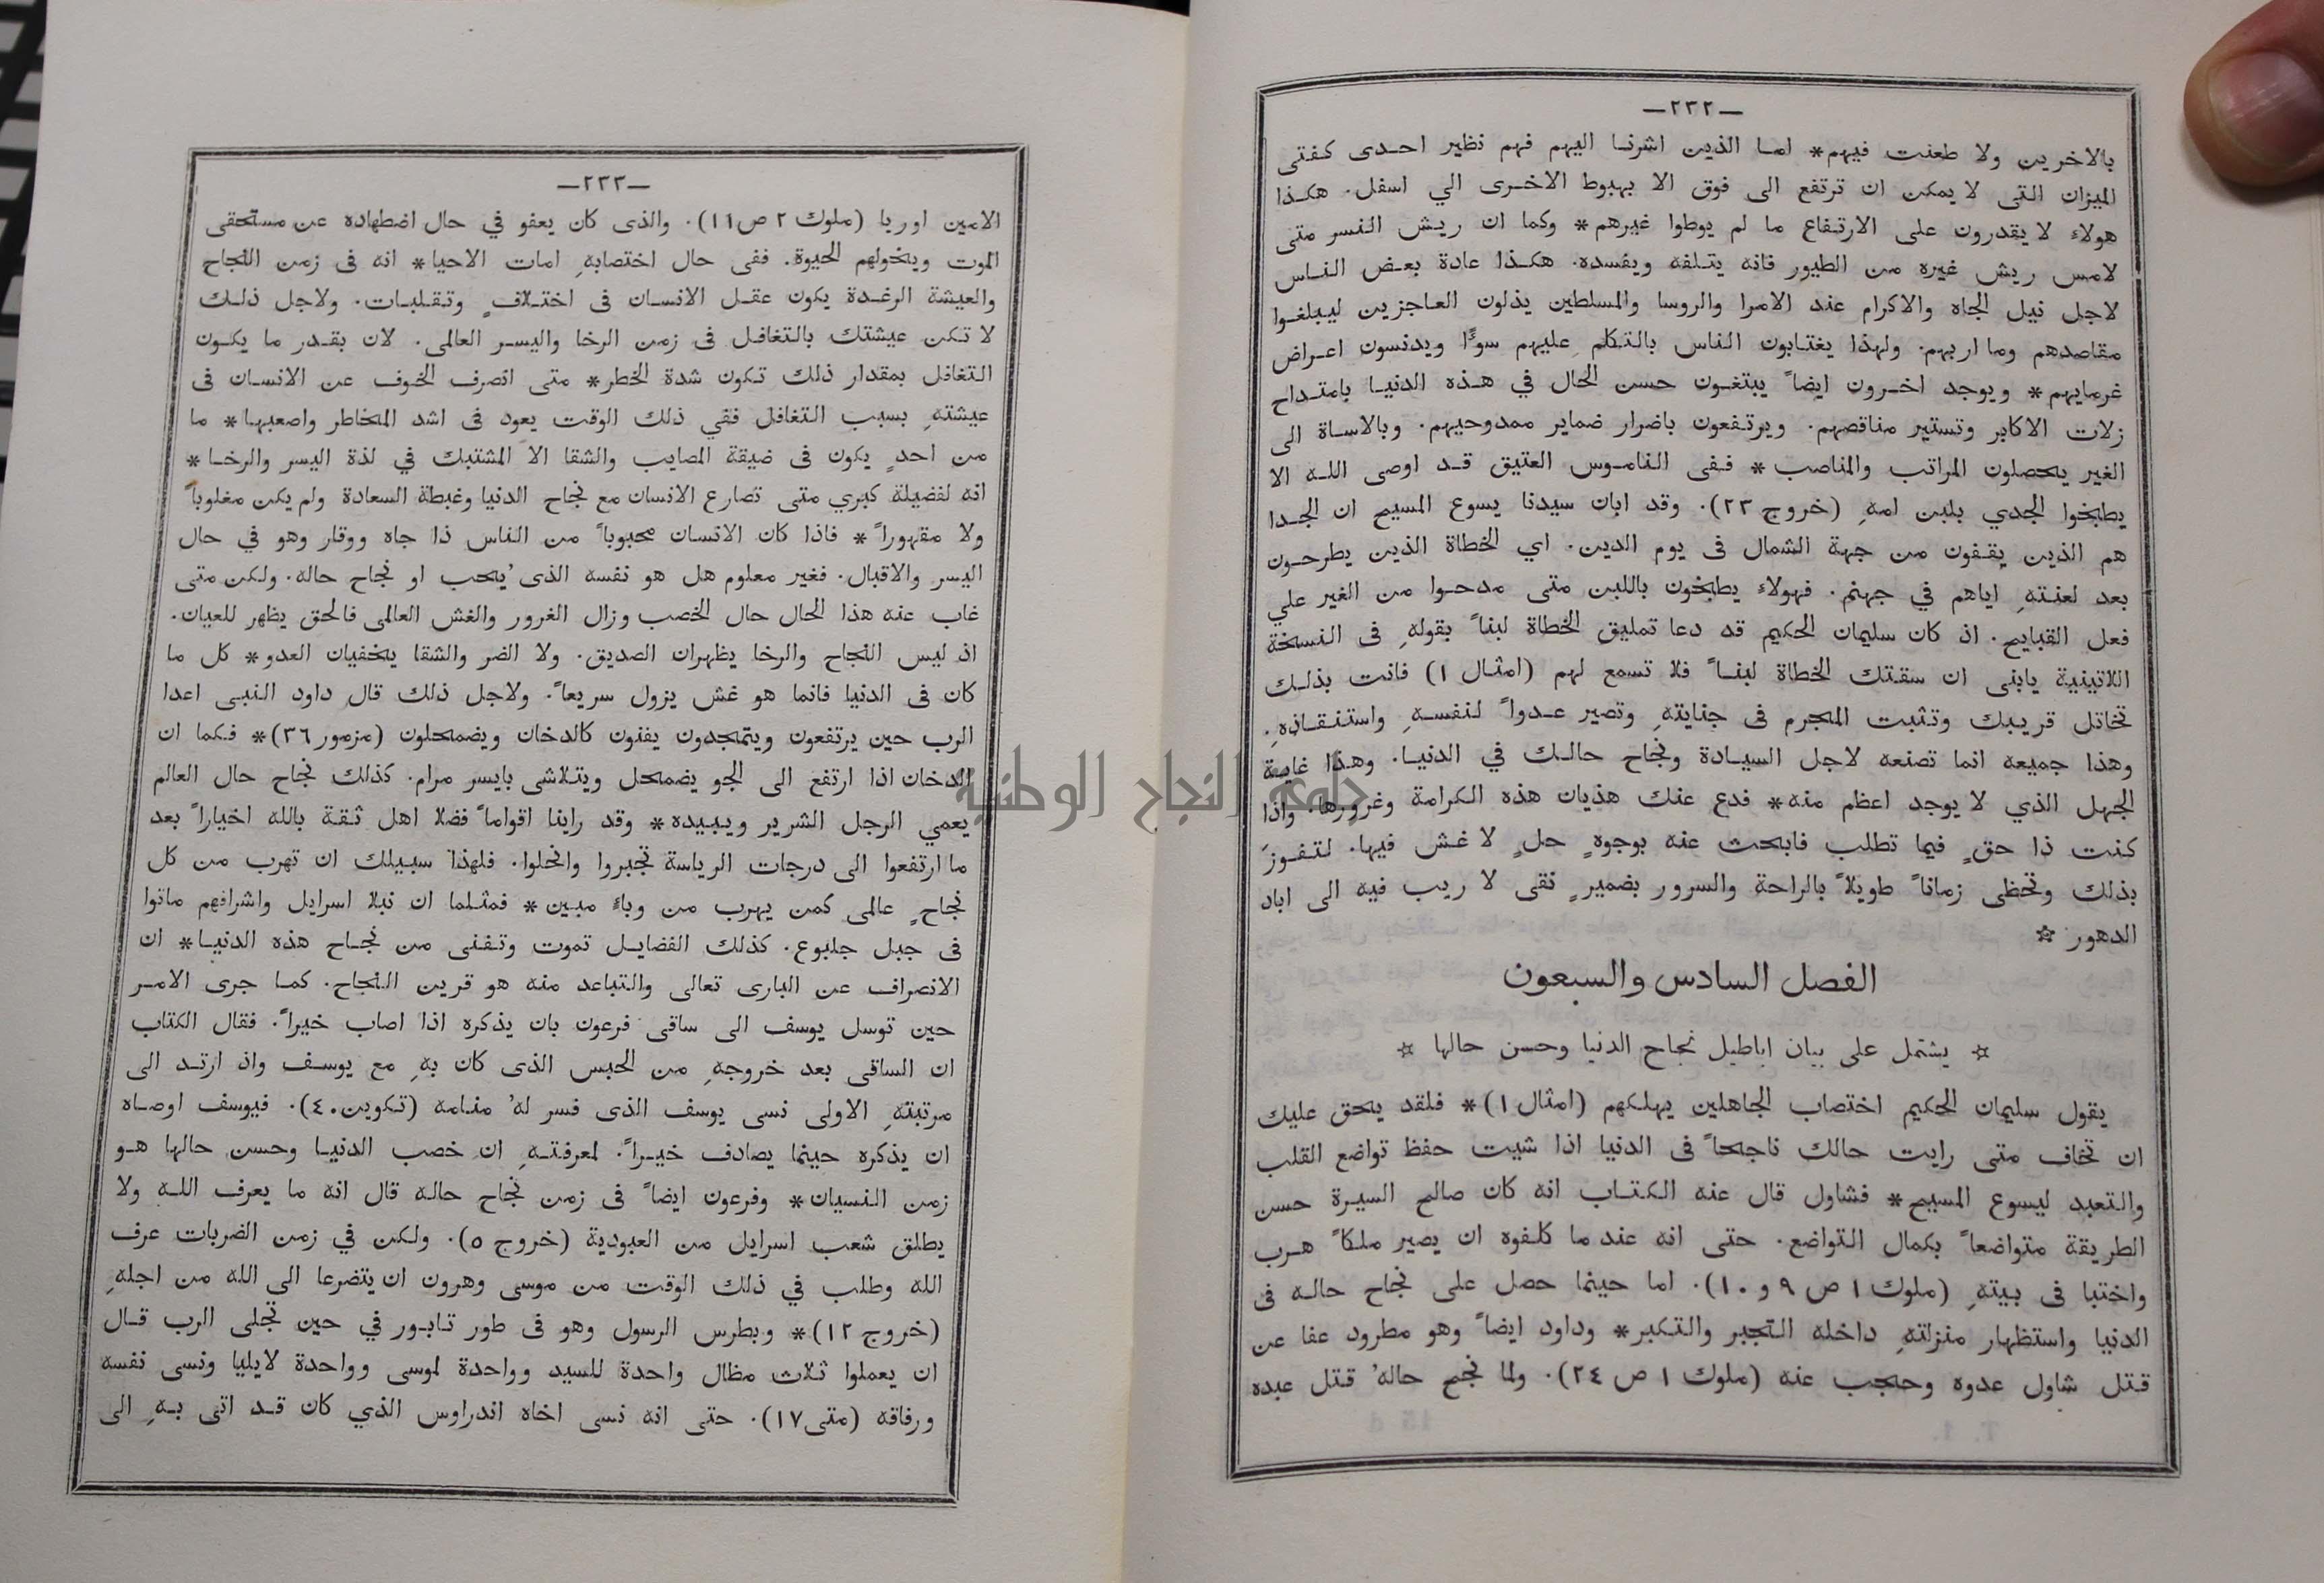 —٢٣٢—
بالاخرين ولا طعنت فيهم* اما الذين اشرنا اليهم فهم نظير احدى كفتى
الميزان التى لا يمكن ان ترتفع الى فوق الا بهبوط الاخرى الي اسفل. هكذا
هولاء لا يقدرون على الارتفاع ما لم يوطوا غيرهم* وكما ان ريش النسر متى
لامس ريش غيره من الطيور فانه يتلفه ويفسده. هكذا عادة بعض الناس
لاجل نيل الجاه والاكرام عند الامرا والروسا والمسلطين يذلون العاجزين ليبلغوا
مقاصدهم وما اربهم. ولهذا يغتابون الناس بالتكلم عليهم سوًا ويدنسون اعراض
غرمايهم* ويوجد اخرون ايضاً يبتغون حسن الحال في هذه الدنيا بامتداح
زلات الاكابر وتستير مناقصهم. ويرتفعون باضرار ضماير ممدوحيهم. وبالاساة الى
الغير يحصلون المراتب والمناصب* ففى الناموس العتيق قد اوصى الله الا
يطبخوا الجدي بلبن امهِ (خروج ٢٣). وقد ابان سيدنا يسوع المسيح ان الجدا
هم الذين يقفون من جهة الشمال فى يوم الدين. اي الخطاة الذين يطرحون
بعد لعنتهِ اياهم في جهنم. فهولاء يطبخون باللبن متى مدحوا من الغير علي
فعل القبايح. اذ كان سليمان الحكيم قد دعا تمليق الخطاة لبناً بقولهِ فى النسخة
اللاتينية يابنى ان سقتك الخطاة لبناً فلا تسمع لهم (امثال ١) فانت بذلك
تخاتل قريبك وتثبت المجرم فى جنايتهِ وتصير عدواً لنفسهِ واستنقاذهِ.
وهذا جميعه انما تصنعه لاجل السيادة ونجاح حالك في الدنيا. وهذا غاية
الجهل الذي لا يوجد اعظم منه* فدع عنك هذيان هذه الكرامة وغرورها. واذا
كنت ذا حقٍ فيما تطلب فابحث عنه بوجوهٍ حلٍ لا غش فيها. لتفوزَ
بذلك وتحظى زماناً طويلاً بالراحة والسرور بضميرٍ نقى لا ريب فيه الى اباد
الدهور ☆
الفصل السادس والسبعون
☆ يشتمل على بيان اباطيل نجاح الدنيا وحسن حالها ☆
يقول سليمان الحكيم اختصاب الجاهلين يهلكهم (امثال ١)* فلقد يحق عليك
ان تخاف متى رايت حالك ناجحاً فى الدنيا اذا شيت حفظ تواضع القلب
والتعبد ليسوع المسيح* فشاول قال عنه الكتاب انه كان صالح السيرة حسن
الطريقة متواضعاً بكمال التواضع. حتى انه عند ما كلفوه ان يصير ملكاً هرب
واختبا فى بيتهِ (ملوك ١ ص ٩ و ١٠). اما حينما حصل على نجاح حاله فى
الدنيا واستظهار منزلتهِ داخله التجبر والتكبر* وداود ايضاً وهو مطرود عفا عن
قتل شاول عدوه وحجب عنه (ملوك ١ ص ٢٤). ولما نجح حاله' قتل عبده
—٢٣٣—
الامين اوريا (ملوك ٢ ص ١١). والذى كان يعفو في حال اضطهاده عن مستحقى
الموت ويخولهم الحيوة. ففى حال اختصابهِ امات الاحيا* انه فى زمن النجاح
والعيشة الرغدة يكون عقل الانسان فى اختلافٍ وتقلبات. ولاجل ذلك
لا تكن عيشتك بالتغافل فى زمن الرخا واليسر العالمى. لان بقدر ما يكون
التغافل بمقدار ذلك تكون شدة الخطر* متى انصرف الخوف عن الانسان فى
عيشتهِ بسبب التغافل ففي ذلك الوقت يعود فى اشد المخاطر واصعبها* ما
من احدٍ يكون فى ضيقة المصايب والشقا الا المشتبك في لذة اليسر والرخا*
انه لفضيلة كبري متى تصارع الانسان مع نجاح الدنيا وغبطة السعادة ولم يكن مغلوباً
ولا مقهوراً* فاذا كان الانسان محبوباً من الناس ذا جاه ووقار وهو في حال
اليسر والاقبال. فغير معلوم هل هو نفسه الذى 'يحب او نجاح حاله. ولكن متى
غاب عنه هذا الحال حال الخصب وزال الغرور والغش العالمى فالحق يظهر للعيان.
اذ ليس النجاح والرخا يظهران الصديق. ولا الضر والشقا يخفيان العدو* كل ما
كان فى الدنيا فانما هو غش يزول سريعاً. ولاجل ذلك قال داود النبى اعدا
الرب حين يرتفعون ويتمجدون يفنون كالدخان ويضمحلون (مزمور ٣٦)* فكما ان
الدخان اذا ارتفع الى الجو يضمحل ويتلاشى بايسر مرام. كذلك نجاح حال العالم
يعمي الرجل الشرير ويبيده* وقد راينا اقواماً فضلا اهل ثقة بالله اخياراً بعد
ما ارتفعوا الى درجات الرياسة تجبروا وانحلوا. فلهذا سبيلك ان تهرب من كل
نجاحٍ عالمى كمن يهرب من وباءٍ مبين* فمثلما ان نبلا اسرايل واشرافهم ماتوا
فى جبل جلبوع. كذلك الفضايل تموت وتفنى من نجاح هذه الدنيا* ان
الانصراف عن البارى تعالى والتباعد منه هو قرين النجاح. كما جرى الامر
حين توسل يوسف الى ساقى فرعون بان يذكره اذا اصاب خيراً. فقال الكتاب
ان الساقى بعد خروجهِ من الحبس الذى كان بهِ مع يوسف واذ ارتد الى
مرتبتهِ الاولى نسى يوسف الذى فسر له' منامه (تكوين ٤٠). فيوسف اوصاه
ان يذكره حينما يصادف خيراً. لمعرفتهِ ان خصب الدنيا وحسن حالها هو
زمن النسيان* وفرعون ايضاً فى زمن نجاح حاله قال انه ما يعرف الله ولا
يطلق شعب اسرايل من العبودية (خروج ٥). ولكن في زمن الضربات عرف
الله وطلب في ذلك الوقت من موسى وهرون ان يتضرعا الى الله من اجلهِ
(خروج ١٢)* وبطرس الرسول وهو فى طور تابور في حين تجلى الرب قال
ان يعملوا ثلاث مظال واحدة للسيد وواحدة لموسى وواحدة لايليا ونسى نفسه
ورفاقه (متى ١٧). حتى انه نسى اخاه اندراوس الذي كان قد اتى بهِ الى
جامعة النجاح الوطنية